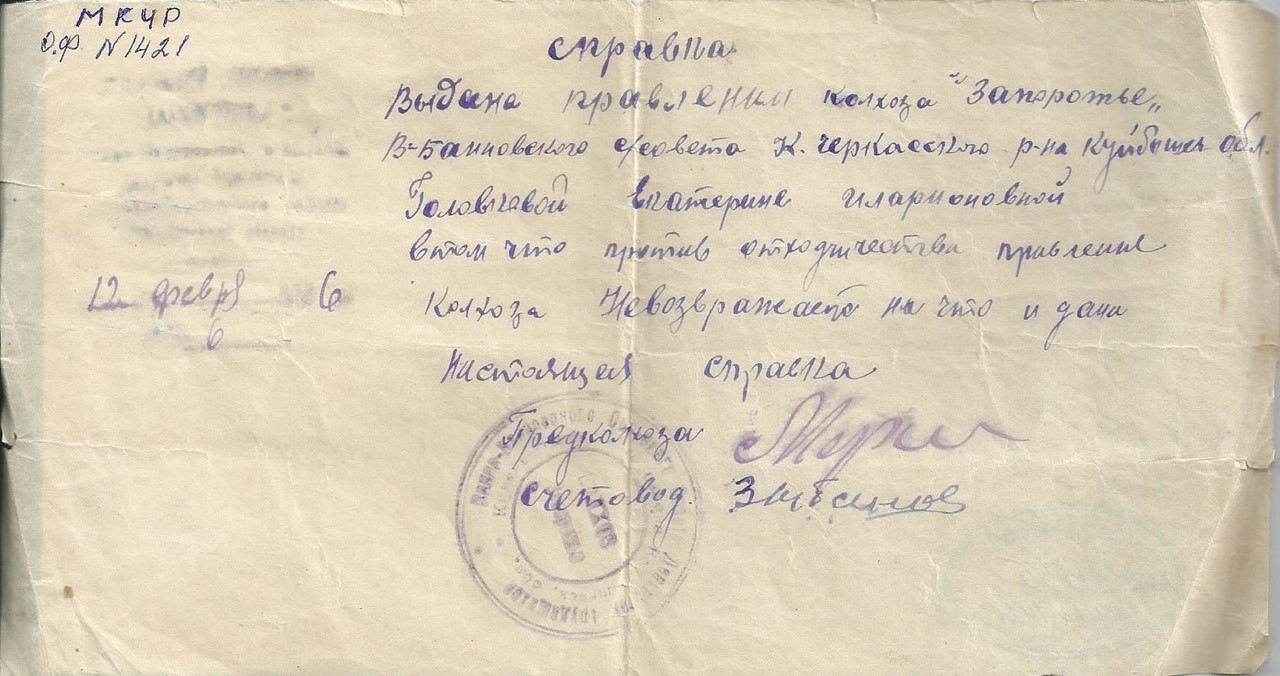 МКЧР
О.Ф. N1421
справка
Выдана правлении колхоза "Запорожье„
В-Банновского с/совета К. Черкасского р-на Куйбышев обл.
Екатерине иларионовной
втом что против отходничества правление
12 февр 6
6
колхоза Невозвражаетъ на что и дана
Настоящея справка
Предколхоза
счетовод.